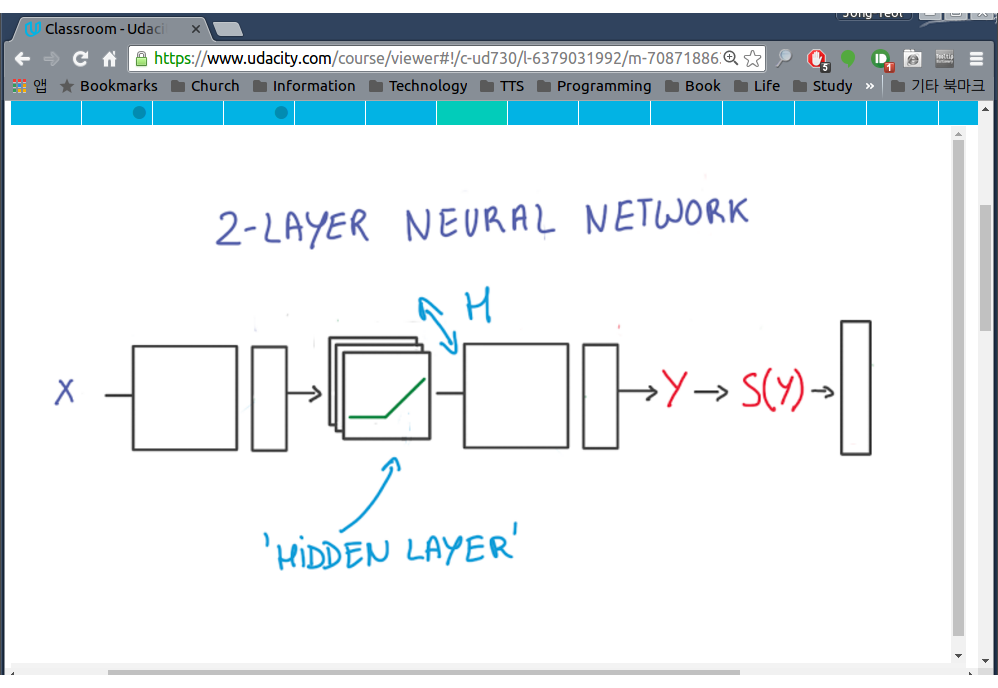 Jong Yeol
Classroom - Udaci
https://www.udacity.com/course/viewer#!/c-ud730/l-6379031992/m-70871886
5
1
앱 Bookmarks Church Information Technology TTS Programming Book Life Study » 기타 북마크
2-LAYER NEURAL NETWORK
H
X
Y → S(Y) →
'HIDDEN LAYER'